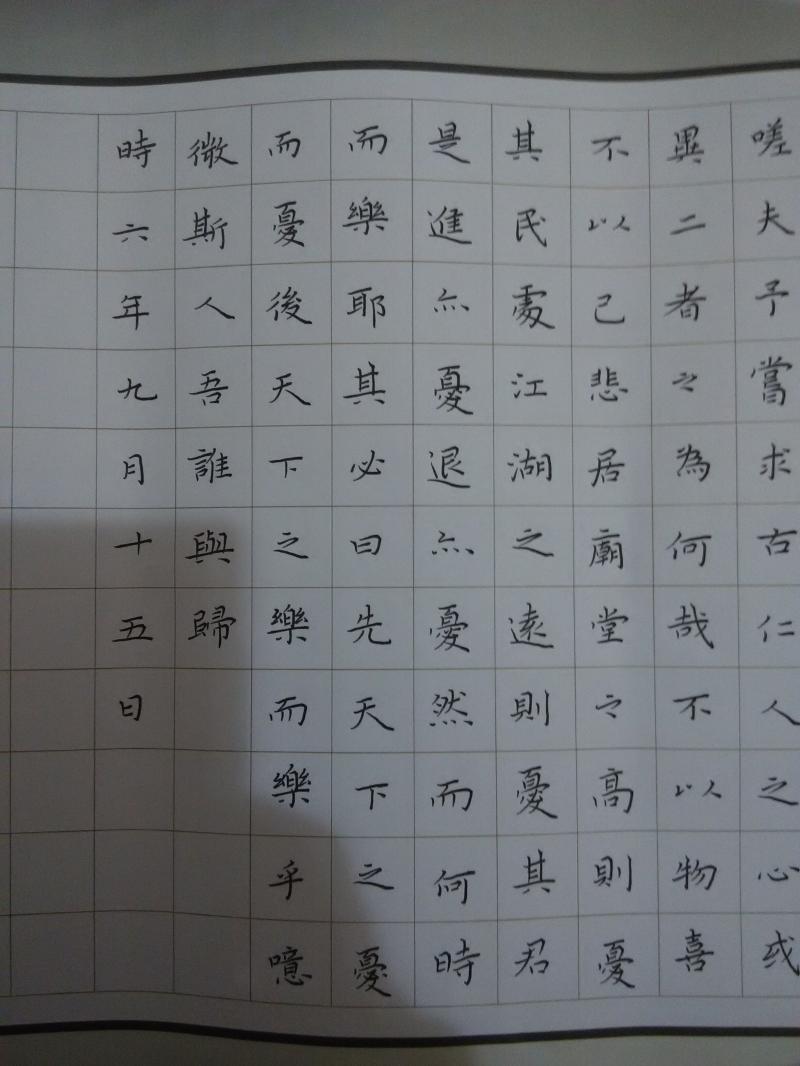 嗟夫予嘗求古仁人之心或
異二者之為何哉不以物喜
不以己悲居廟堂之高則憂
其民處江湖之遠則憂其君
是進亦憂退亦憂然而何時
而樂耶其必曰先天下之憂
而憂後天下之樂而樂乎噫
微斯人吾誰與歸
時六年九月十五日